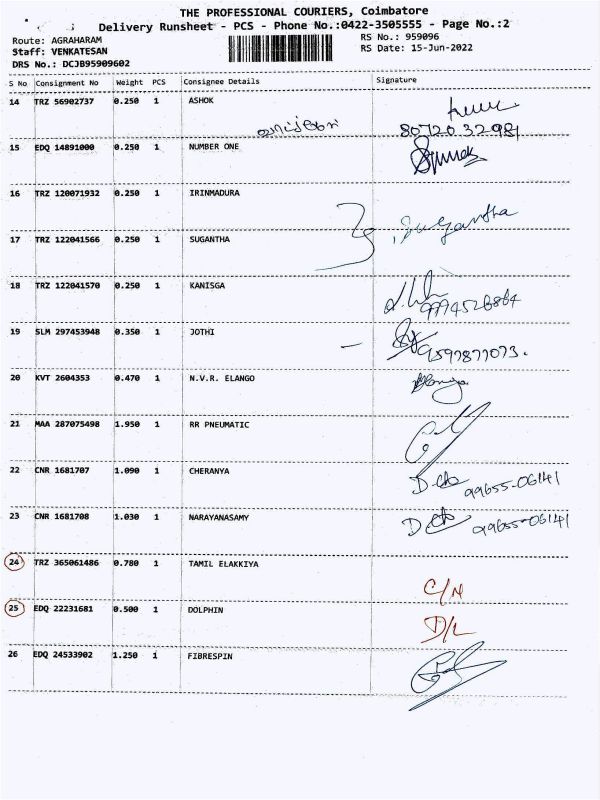 THE PROFESSIONAL COURIERS, Coimbatore
Delivery Runsheet - PCS - Phone No.:0422-3505555 - Page No.:2
Route: AGRAHARAM
RS No.: 959096
Staff: VENKATESAN
RS Date: 15-Jun-2022
DRS No.: DCJB95909602
S No Consignment No Weight PCS Consignee Details Signature
14 TRZ 56902737 0.250 1 ASHOK
80720 32981
15 EDQ 14891000 0.250 1 NUMBER ONE
16 TRZ 120071932 0.250 1 IRINMADURA
Sugantha
17 TRZ 122041566 0.250 1 SUGANTHA
18 TRZ 122041570 0.250 1 KANISGA
19 SLM 297453948 0.350 1 JOTHI
9597877073.
20 KVT 2604353 0.470 1 N.V.R. ELANGO
21 MAA 287075498 1.950 1 RR PNEUMATIC
22 CNR 1681707 1.090 1 CHERANYA
99655-06141
23 CNR 1681708 1.030 1 NARAYANASAMY
99655-06141
24 TRZ 365061486 0.780 1 TAMIL ELAKKIYA
C/N
25 EDQ 22231681 0.500 1 DOLPHIN
D/L
26 EDQ 24533902 1.250 1 FIBRESPIN